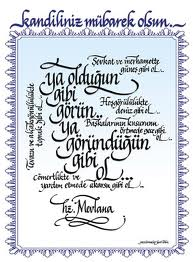 kandiliniz mübarek olsun...
Şevkat ve merhamette
güneş gibi ol...
ya olduğun
gibi
görün...
ya
göründüğün
gibi
ol...
Hoşgörülülükte
deniz gibi ol...
Başkalarının kusurunu
örtmede gece gibi
ol...
Tevazu ve alçakgönüllülükte
toprak gibi ol...
Cömertlikte ve
yardım etmede akarsu gibi ol...
Hz. Mevlana